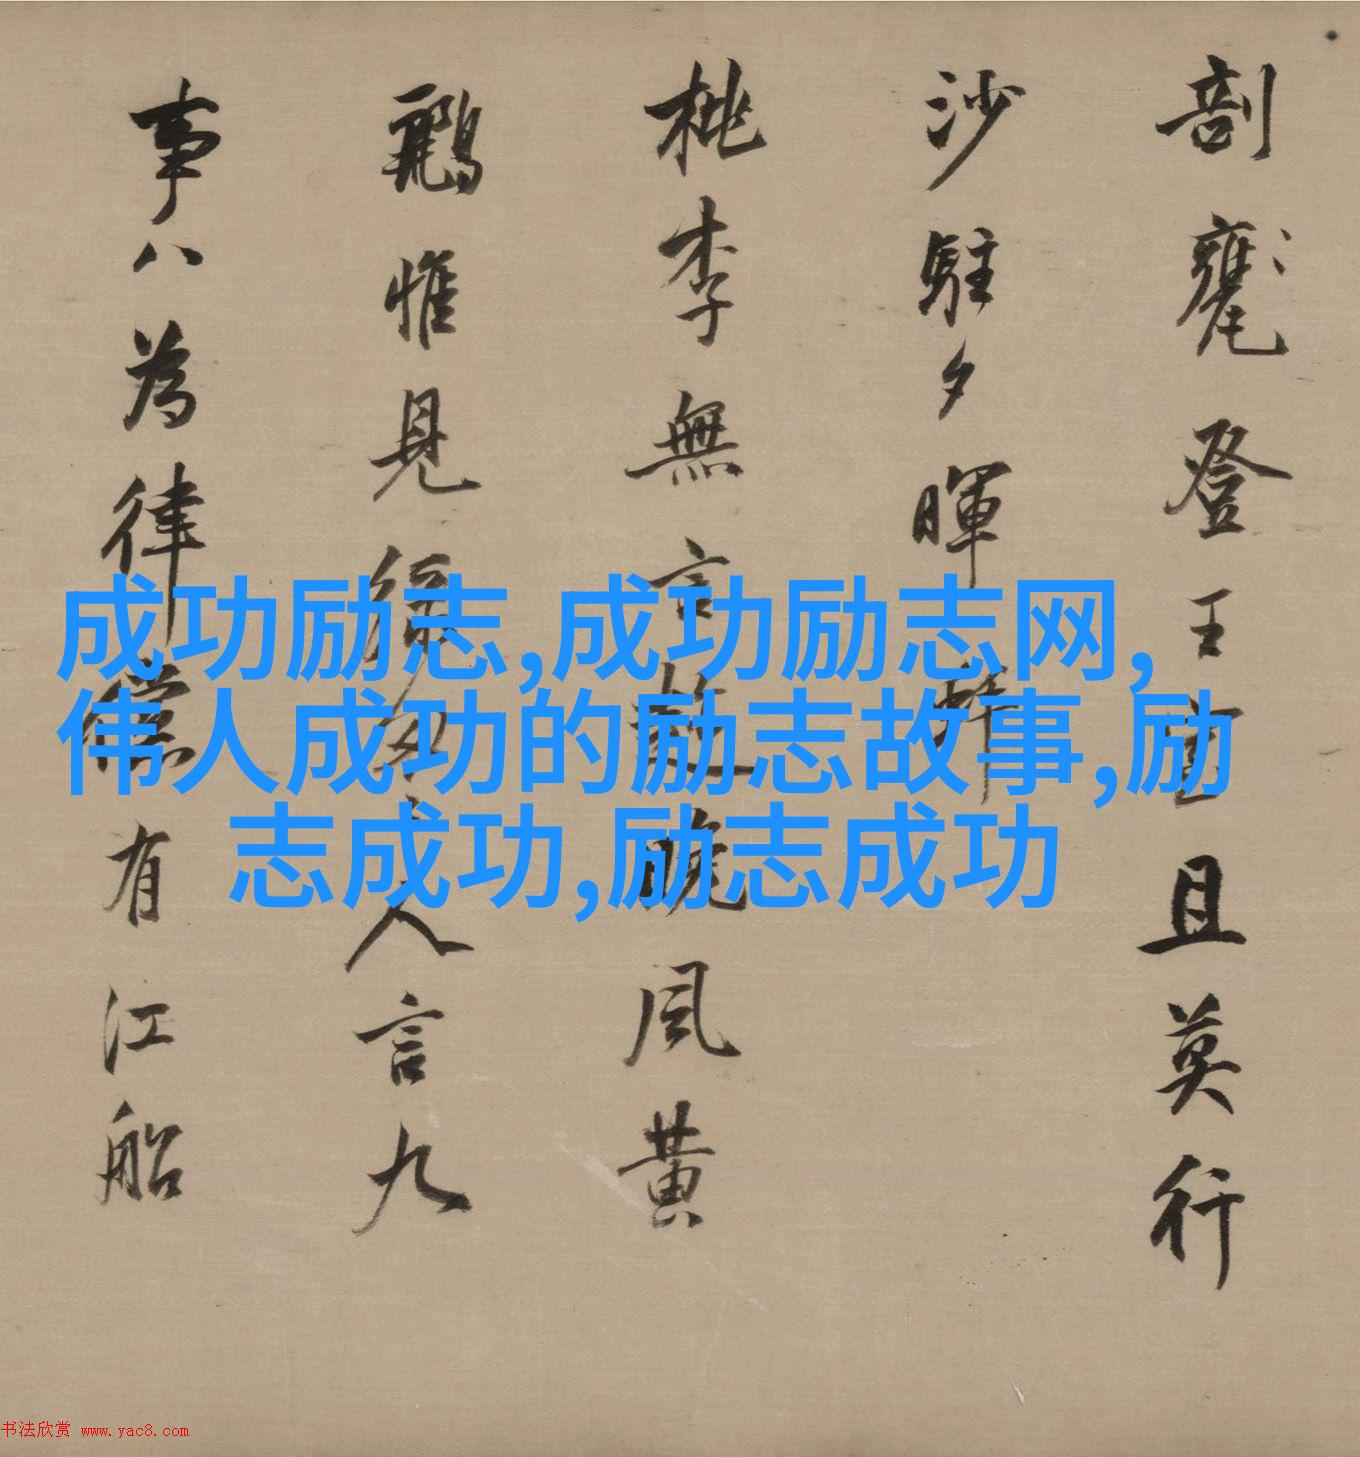 剖甕登王室且莫行
沙駐夕暉
桃李無言晚風黄
鸝惟見綠匆人言九
事八為律儻有江船
成功励志,成功励志网,
伟人成功的励志故事,励
志成功,励志成功
书法欣赏 www.yac8.com